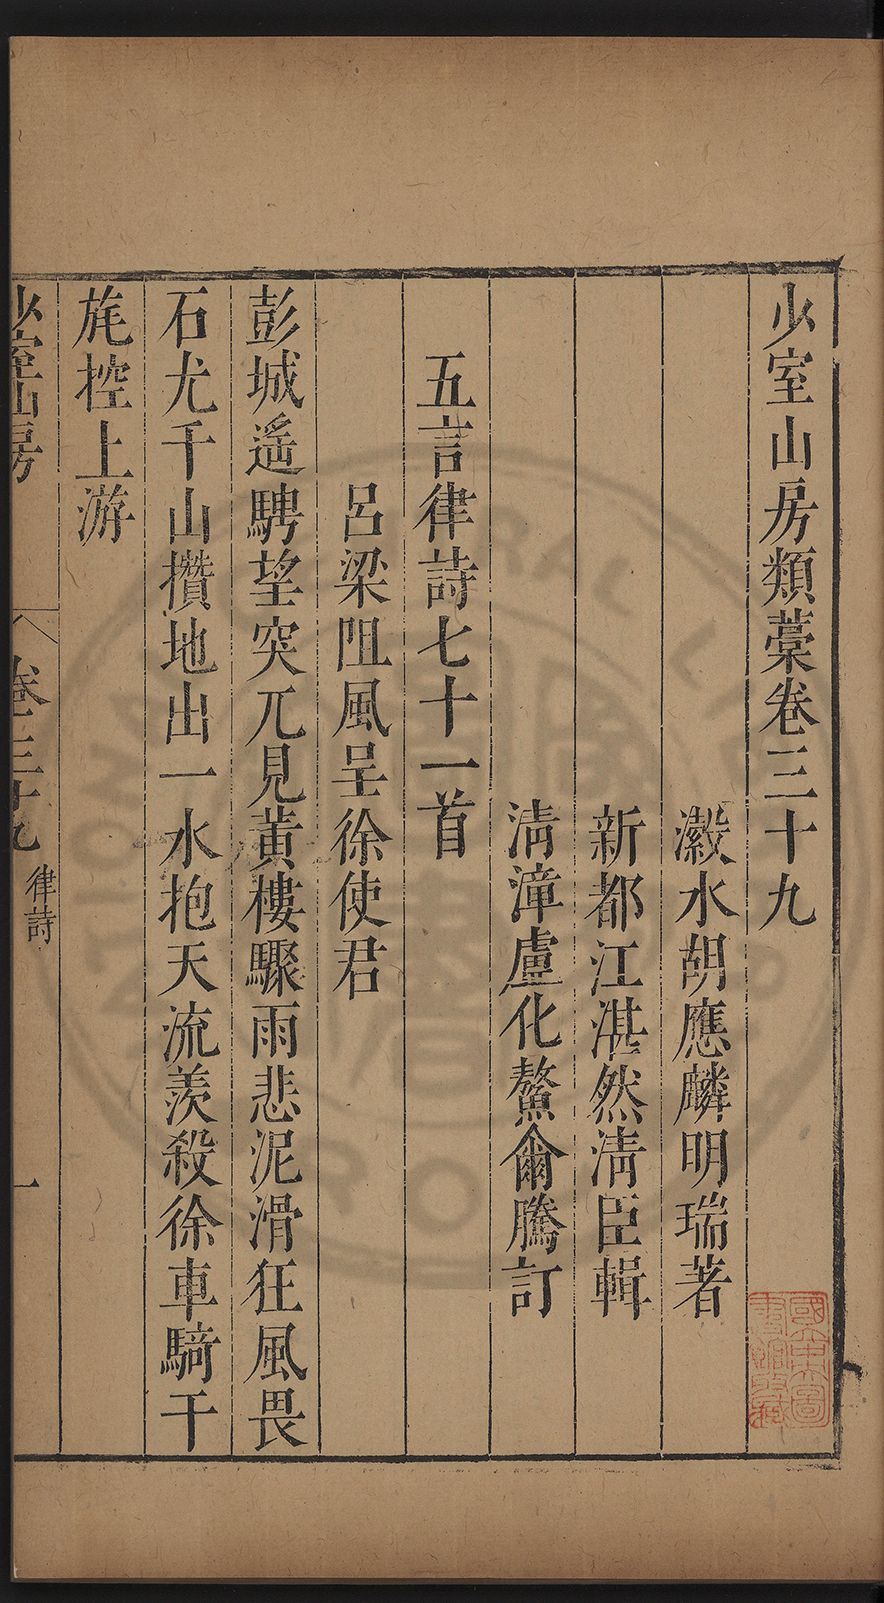 少室山房類藁卷三十九
瀫水胡應麟明瑞著
新都江湛然清臣輯
清漳盧化鰲尒騰訂
五言律詩七十一首
呂梁阻風呈徐使君
彭城遙騁望突兀見黃樓驟雨悲泥滑狂風畏
石尤千山攢地出一水抱天流羨殺徐車騎干
旄控上游
少室山房
卷三十九
律詩
一
國立中央圖書館收藏